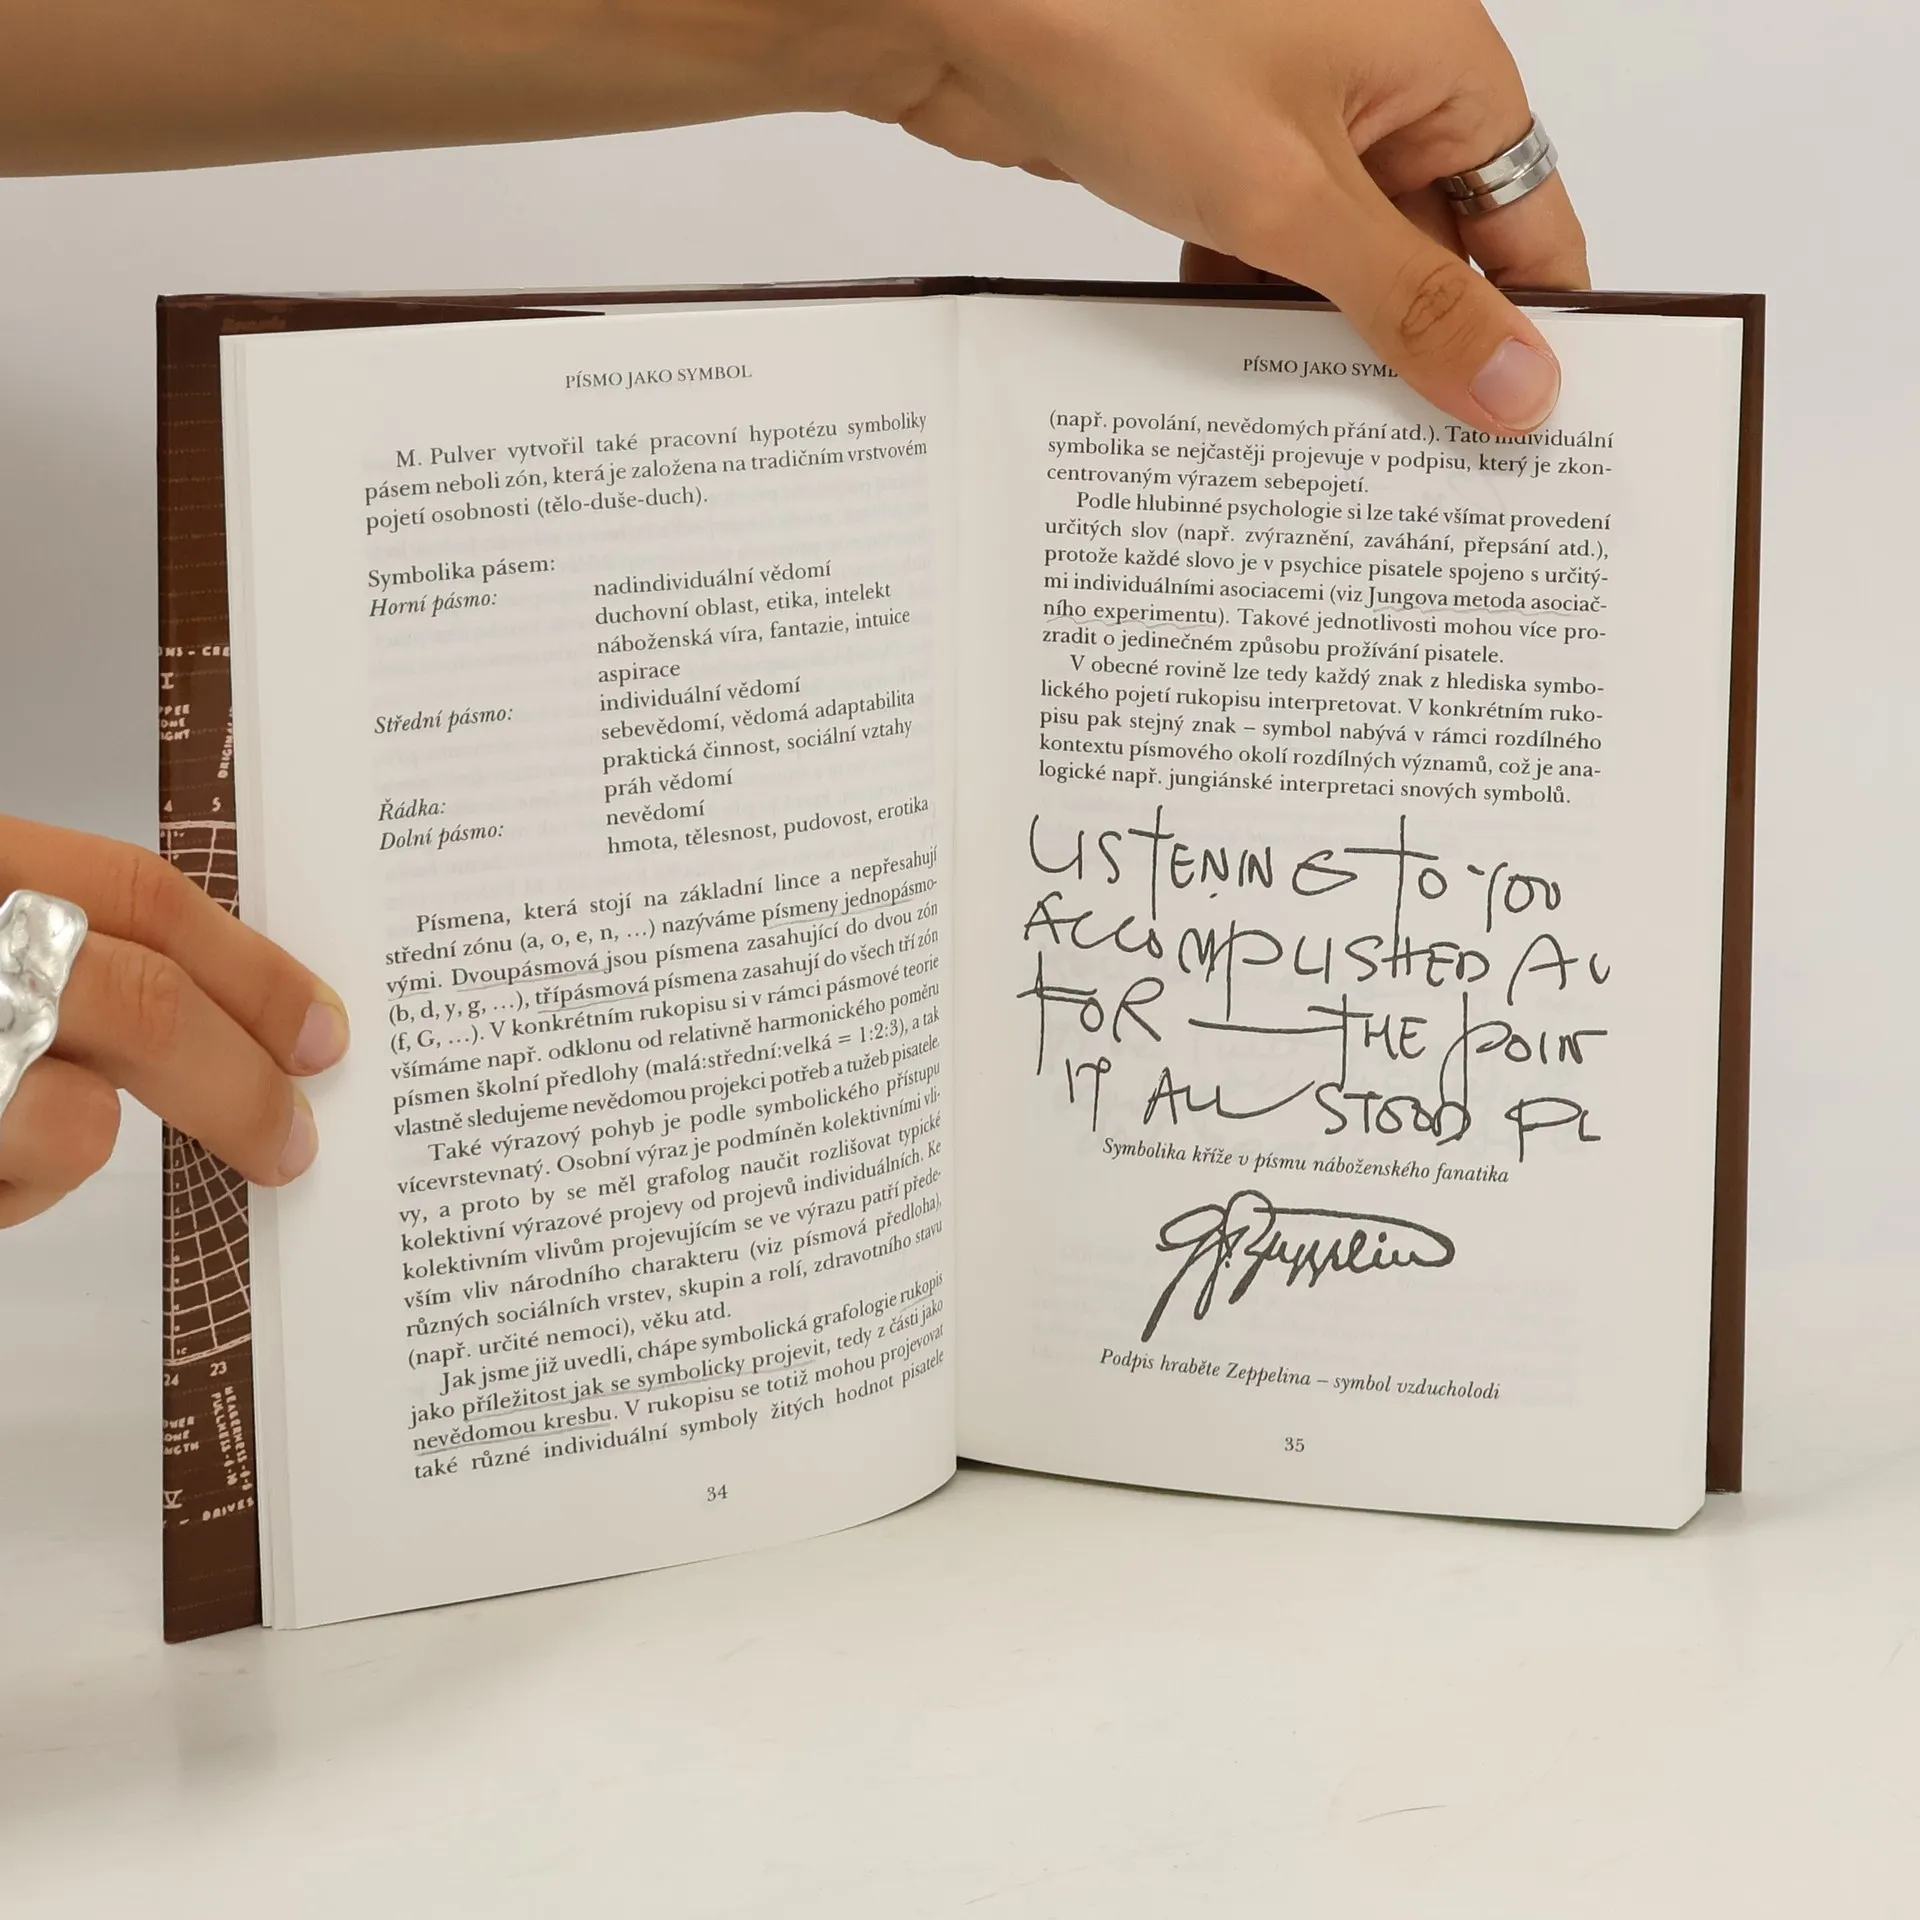 PÍSMO JAKO SYMBOL
M. Pulver vytvořil také pracovní hypotézu symboliky
pásem neboli zón, která je založena na tradičním vrstvovém
pojetí osobnosti (tělo-duše-duch).
Symbolika pásem:
Horní pásmo: nadindividuální vědomí
duchovní oblast, etika, intelekt
náboženská víra, fantazie, intuice
aspirace
Střední pásmo: individuální vědomí
sebevědomí, vědomá adaptabilita
praktická činnost, sociální vztahy
Řádka: práh vědomí
Dolní pásmo: nevědomí
hmota, tělesnost, pudovost, erotika
Písmena, která stojí na základní lince a nepřesahují
střední zónu (a, o, e, n, …) nazýváme písmeny jednopásmo-
vými. Dvoupásmová jsou písmena zasahující do dvou zón
(b, d, y, g, …), třípásmová písmena zasahují do všech tří zón
(f, G, …). V konkrétním rukopisu si v rámci pásmové teorie
všímáme např. odklonu od relativně harmonického poměru
písmen školní předlohy (malá:střední:velká = 1:2:3), a tak
vlastně sledujeme nevědomou projekci potřeb a tužeb pisatele.
Také výrazový pohyb je podle symbolického přístupu
vícevrstevnatý. Osobní výraz je podmíněn kolektivními vli-
vy, a proto by se měl grafolog naučit rozlišovat typické
kolektivní výrazové projevy od projevů individuálních. Ke
kolektivním vlivům projevujícím se ve výrazu patří přede-
vším vliv národního charakteru (viz písmová předloha),
různých sociálních vrstev, skupin a rolí, zdravotního stavu
(např. určité nemoci), věku atd.
Jak jsme již uvedli, chápe symbolická grafologie rukopis
jako příležitost jak se symbolicky projevit, tedy z části jako
nevědomou kresbu. V rukopisu se totiž mohou projevovat
také různé individuální symboly žitých hodnot pisatele
34
PÍSMO JAKO
(např. povolání, nevědomých přání atd.). Tato individuální
symbolika se nejčastěji projevuje v podpisu, který je zkon-
centrovaným výrazem sebepojetí.
Podle hlubinné psychologie si lze také všímat provedení
určitých slov (např. zvýraznění, zaváhání, přepsání atd.),
protože každé slovo je v psychice pisatele spojeno s určitý-
mi individuálními asociacemi (viz Jungova metoda asociač-
ního experimentu). Takové jednotlivosti mohou více pro-
zradit o jedinečném způsobu prožívání pisatele.
V obecné rovině lze tedy každý znak z hlediska symbo-
lického pojetí rukopisu interpretovat. V konkrétním ruko-
pisu pak stejný znak – symbol nabývá v rámci rozdílného
kontextu písmového okolí rozdílných významů, což je ana-
logické např. jungiánské interpretaci snových symbolů.
LISTENING TO YOU
ACCOMPLISHED
FOR — THE POIN
IT ALL STOOD PL
Symbolika kříže v písmu náboženského fanatika
Zeppelin
Podpis hraběte Zeppelina – symbol vzducholodi
35
I
ORIGINAL
4 5
24 23
MEAGERNESS-0-0
FULLNESS-0-10
V - DRIVES